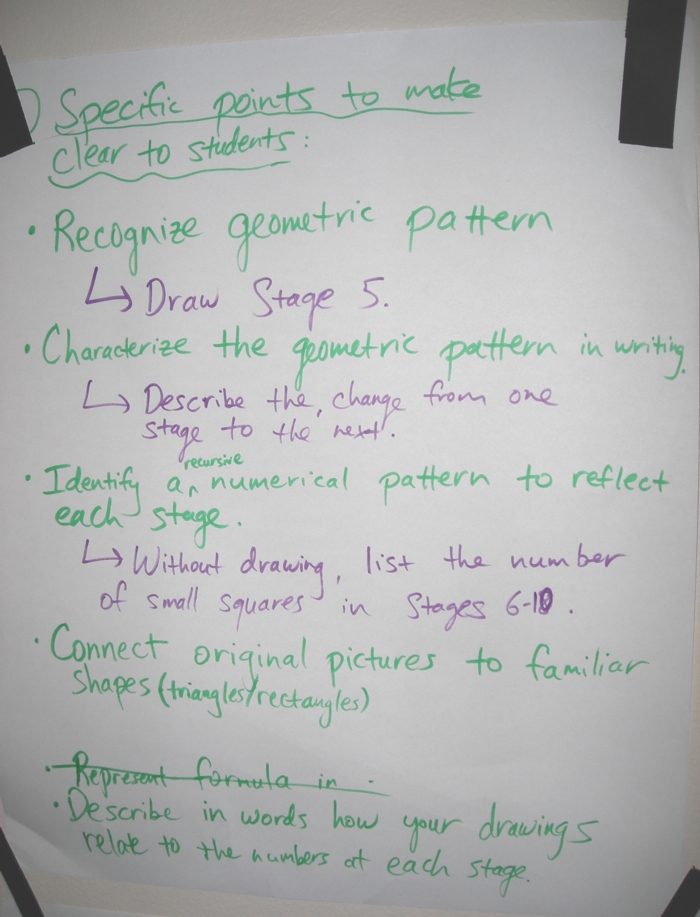 ) Specific points to make
clear to students:
• Recognize geometric pattern
↳ Draw Stage 5.
• Characterize the geometric pattern in writing.
↳ Describe the, change from one
stage to the next.
recursive
• Identify a ^ numerical pattern to reflect
each stage.
↳ Without drawing, list the number
of small squares in Stages 6-10.
• Connect original pictures to familiar
shapes (triangles/rectangles)
• Represent formula in .
• Describe in words how your drawings
relate to the numbers at each stage.